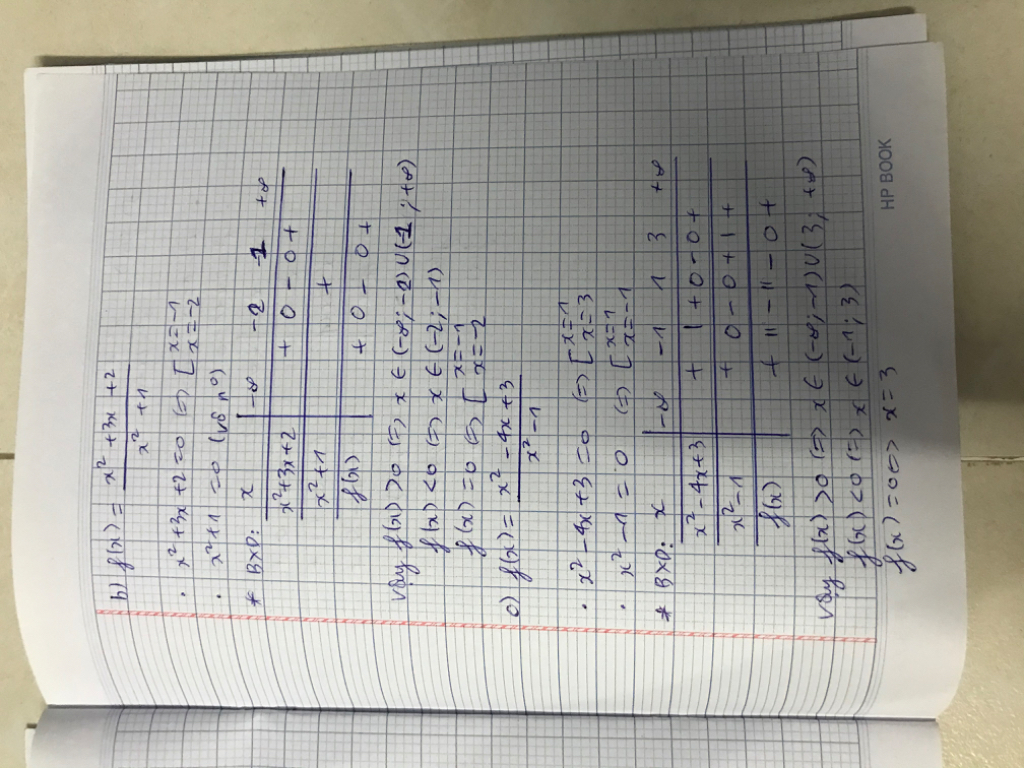 b) f(x) = x² + 3x + 2 / x² + 1
· x² + 3x + 2 = 0 (=) [ x = -1
x = -2
· x² + 1 = 0 (vô nº)
* BXD: x -∞ -2 -1 +∞
x² + 3x + 2 + 0 - 0 +
x² + 1 +
f(x) + 0 - 0 +
Vậy f(x) > 0 (=) x ∈ (-∞; -2) ∪ (-1; +∞)
f(x) < 0 (=) x ∈ (-2; -1)
f(x) = 0 (=) [ x = -1
x = -2
c) f(x) = x² - 4x + 3 / x² - 1
· x² - 4x + 3 = 0 (=) [ x = 1
x = 3
· x² - 1 = 0 (=) [ x = 1
x = -1
* BXD: x -∞ -1 1 3 +∞
x² - 4x + 3 + | + 0 - 0 +
x² - 1 + 0 - 0 + | +
f(x) + || - || - 0 +
Vậy f(x) > 0 (=) x ∈ (-∞; -1) ∪ (3; +∞)
f(x) < 0 (=) x ∈ (-1; 3)
f(x) = 0 <=> x = 3
HP BOOK